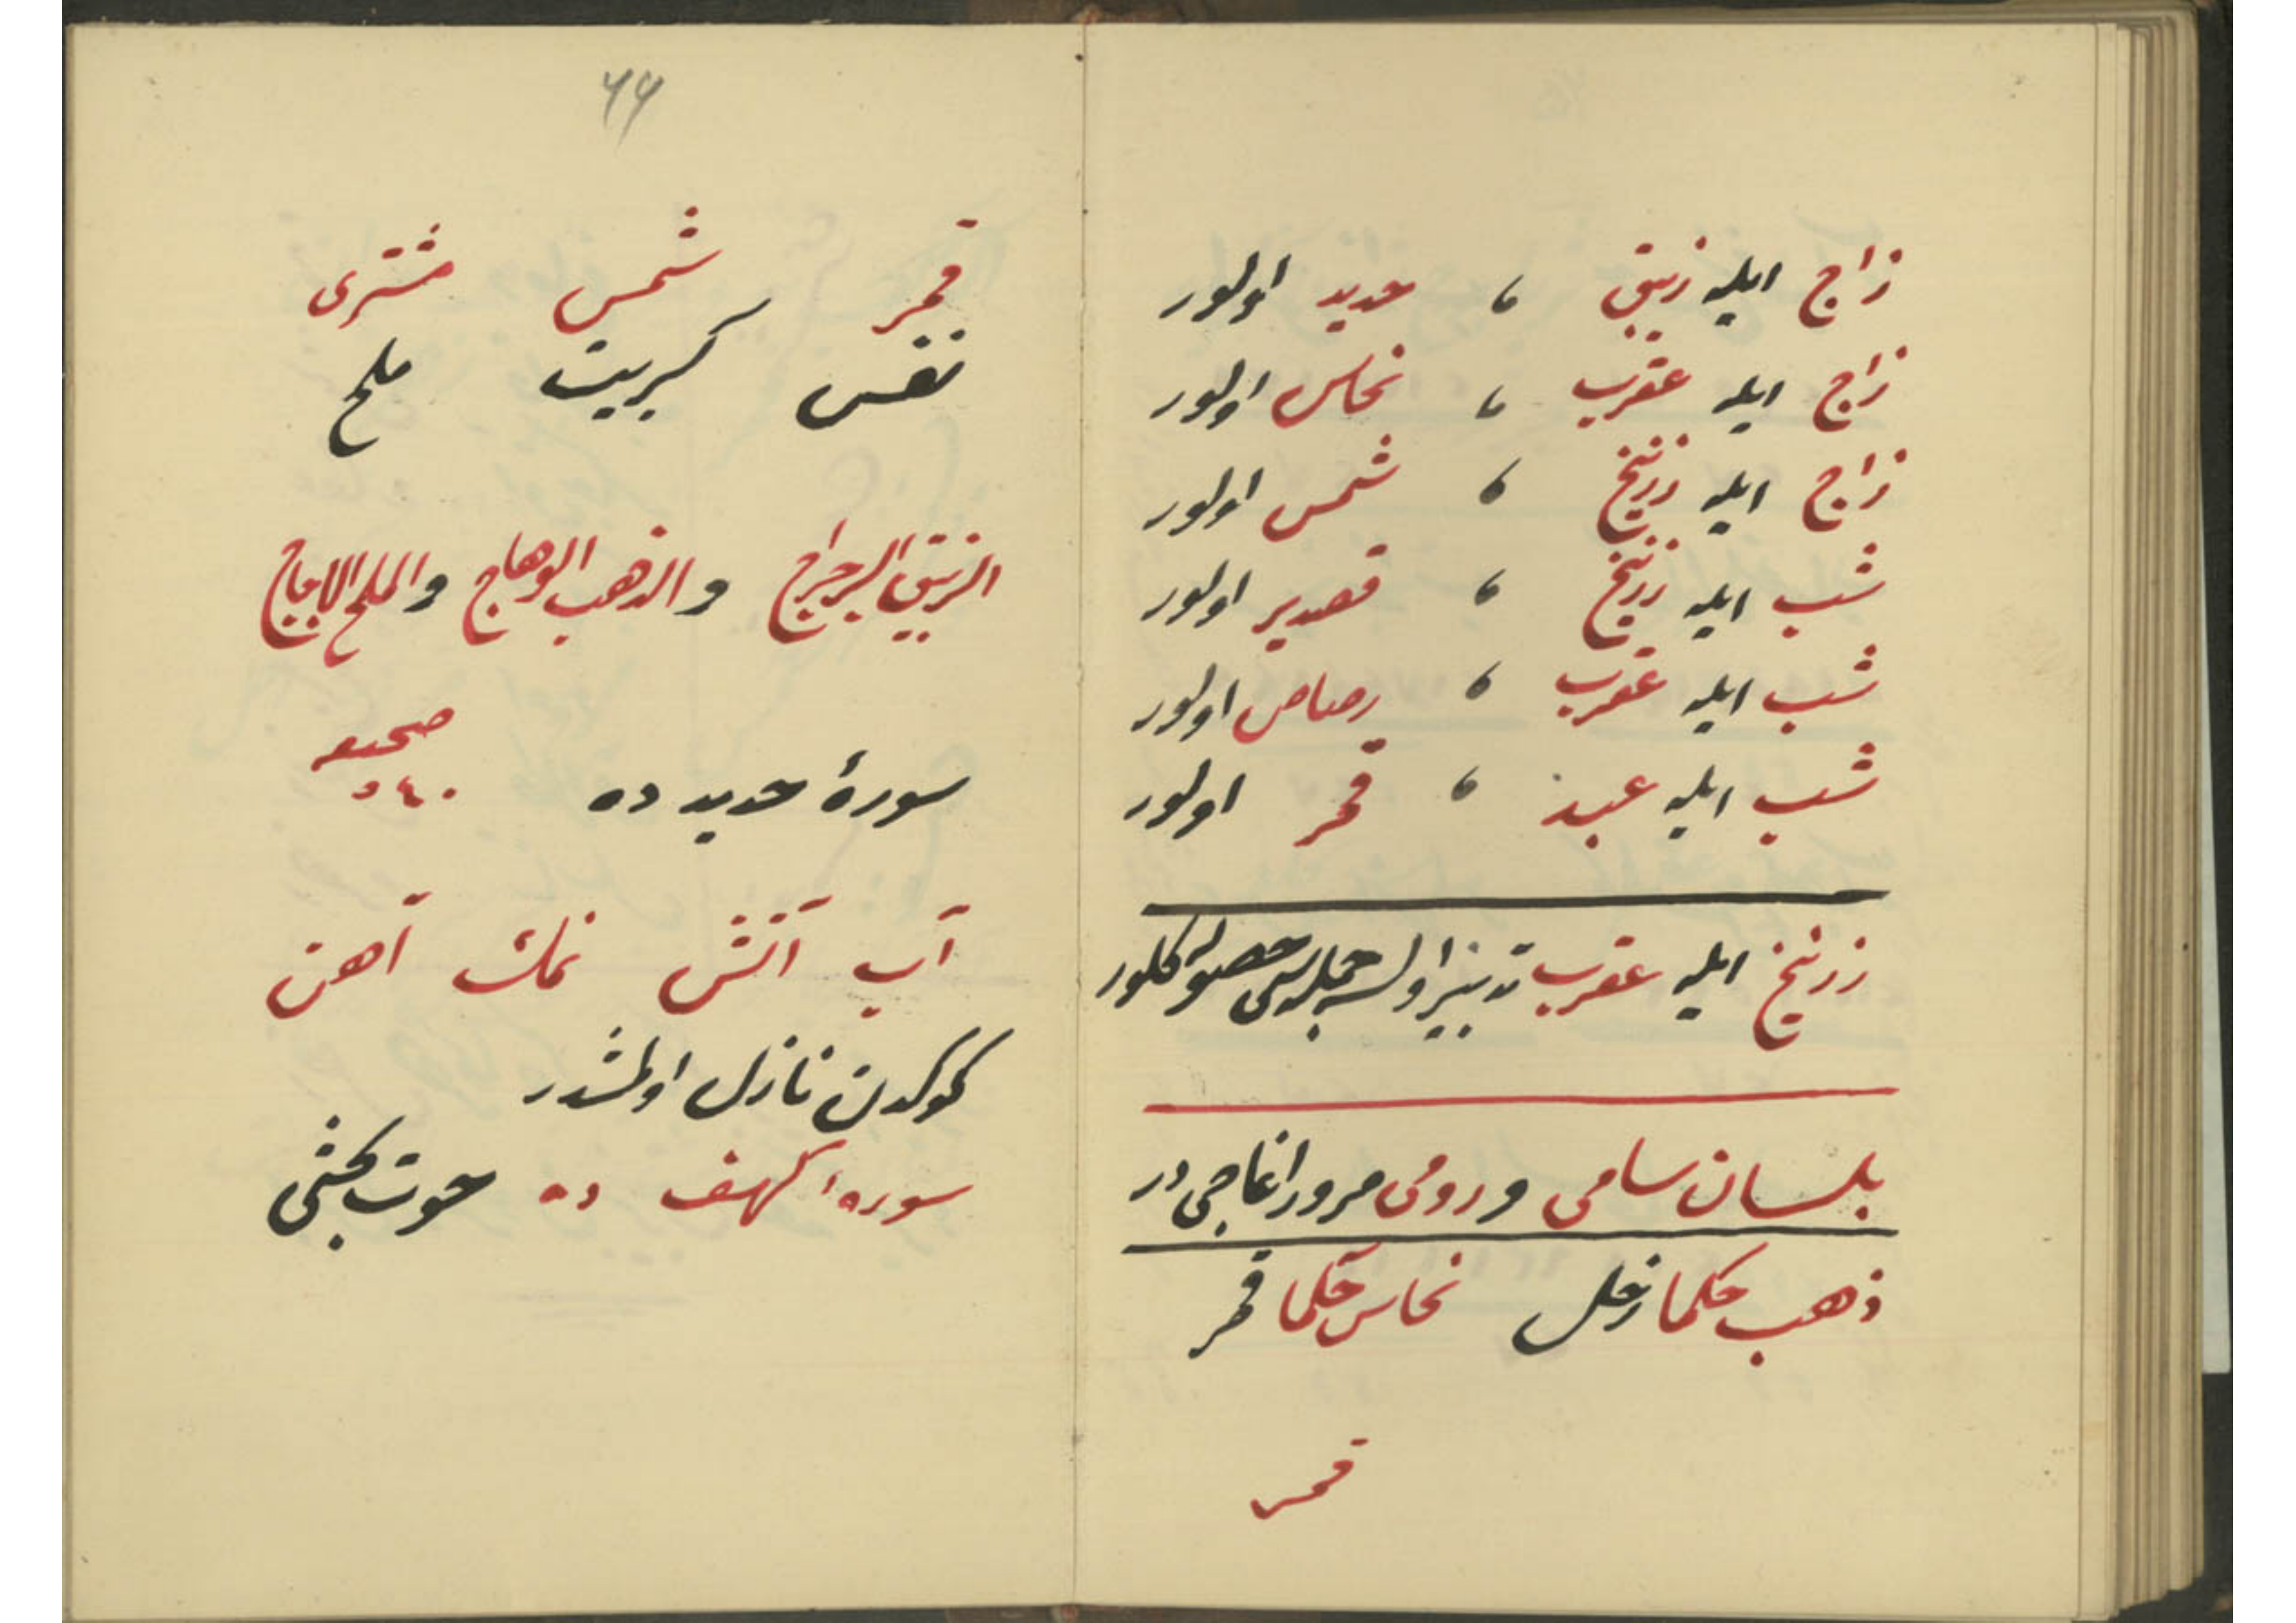 زاج ایله زیبق ، حدید اولور
زاج ایله عقرب ، نحاس اولور
زاج ایله زرنیخ ، شمس اولور
شب ایله زرنیخ ، قصدیر اولور
شب ایله عقرب ، رصاص اولور
شب ایله عبد ، قمر اولور
زرنیخ ایله عقرب تدبیر اولسه جمله‌سی حصوله کلور
بلسان سامی و رومی مرور اغاجی در
ذهب حکما زحل نحاس حکما قمر
قمر
٦٦
قمر شمس مشتری
نفس کبریت ملح
الزیبق الرجراج والذهب الوهاج والملح الاجاج
سورهٔ حدید ده صحیفه ٥٤٠
آب آتش نمك آهن
کوکدن نازل اولمشدر
سوره الکهف ده حوت بحثی